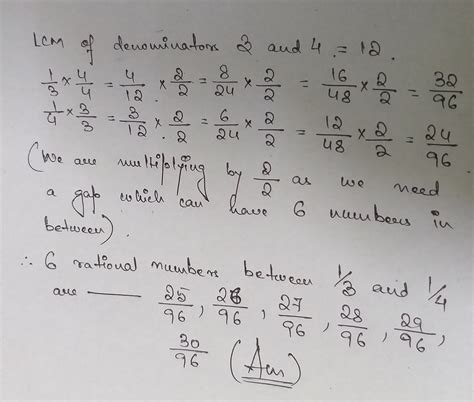 LCM of denominators 3 and 4 = 12.
1/3 × 4/4 = 4/12 × 2/2 = 8/24 × 2/2 = 16/48 × 2/2 = 32/96
1/4 × 3/3 = 3/12 × 2/2 = 6/24 × 2/2 = 12/48 × 2/2 = 24/96.
(We are multiplying by 2/2 as we need
a gap which can have 6 numbers in
between).
∴ 6 rational numbers between 1/3 and 1/4
are — 25/96, 26/96, 27/96, 28/96, 29/96,
30/96 (Ans)